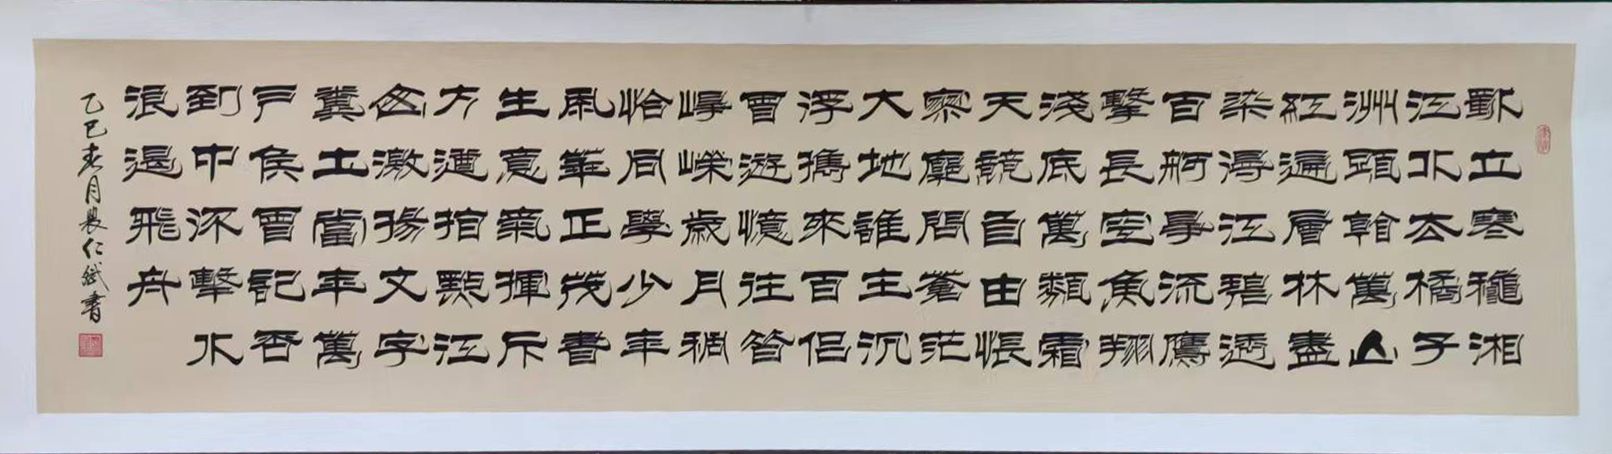 獨立寒穐湘
江北去橘子
洲頭看萬山
紅遍層林盡
染漫江碧透
百舸爭流鷹
擊長空魚翔
淺底萬類霜
天競自由悵
寥廓問蒼茫
大地誰主沉
浮攜來百侶
曾遊憶往昔
崢嶸歲月稠
恰同學少年
風華正茂書
生意氣揮斥
方遒指點江
山激揚文字
糞土當年萬
戶侯曾記否
到中流擊水
浪遏飛舟
乙巳春月仁斌書